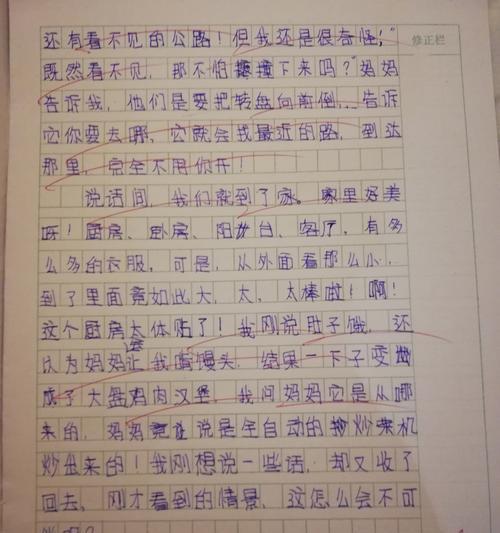 还有看不见的公路！但我还是很奇怪！"
修正栏
既然看不见，那不怕撞下来吗？"妈妈
告诉我，他们是要把转盘向前倒…告诉
它你要去哪，它就会找最近的路，到达
那里，完全不用你开！
说话间，我们就到了家。家里好美
呀！厨房、卧房、阳台、客厅，有多
么多的衣服，可是，从外面看那么小，
到了里面竟如此大，太，太棒啦！啊！
这个厨房太体贴了！我刚说肚子饿，还
以为妈妈会让我啃馒头，结果一下子变
成了大盘鸡肉汉堡，我问妈妈它是从哪
来的，妈妈竟说是全自动的炒菜机
炒出来的！我刚想说一些话，却又收了
回去，刚才看到的情景，这怎么会不可
能呢？